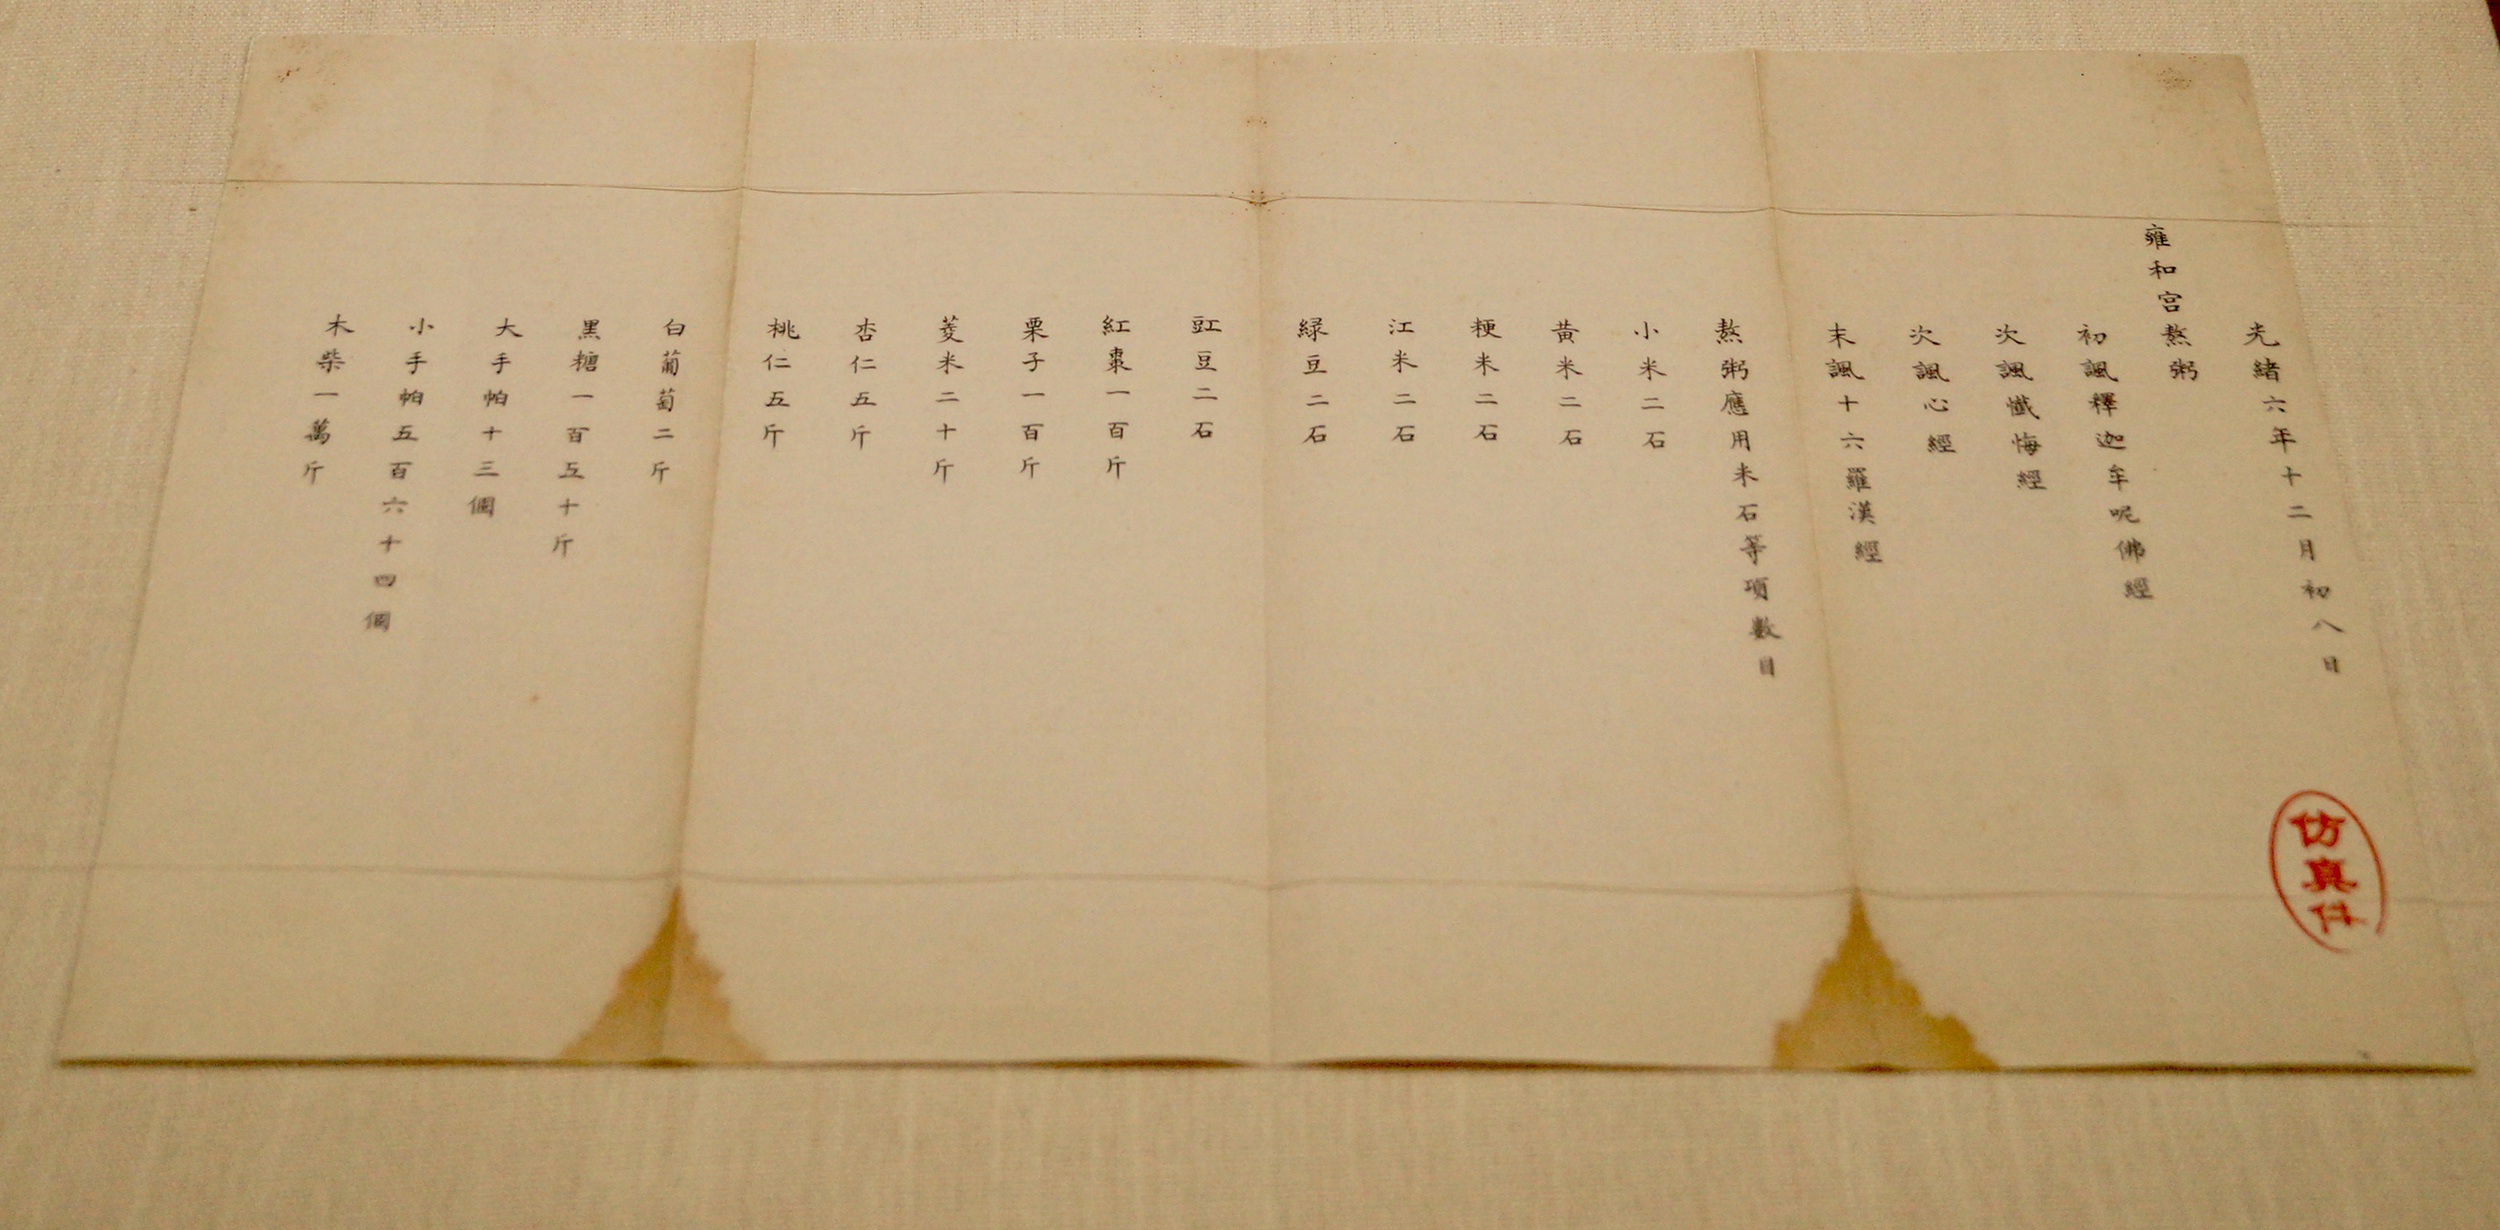 光緒六年十二月初八日
雍和宮熬粥
初諷釋迦牟呢佛經
次諷懺悔經
次諷心經
末諷十六羅漢經
熬粥應用米石等項數目
小米二石
黃米二石
粳米二石
江米二石
緑豆二石
豇豆二石
紅棗一百斤
栗子一百斤
菱米二十斤
杏仁五斤
桃仁五斤
白葡萄二斤
黑糖一百五十斤
大手帕十三個
小手帕五百六十四個
木柴一萬斤
仿真件